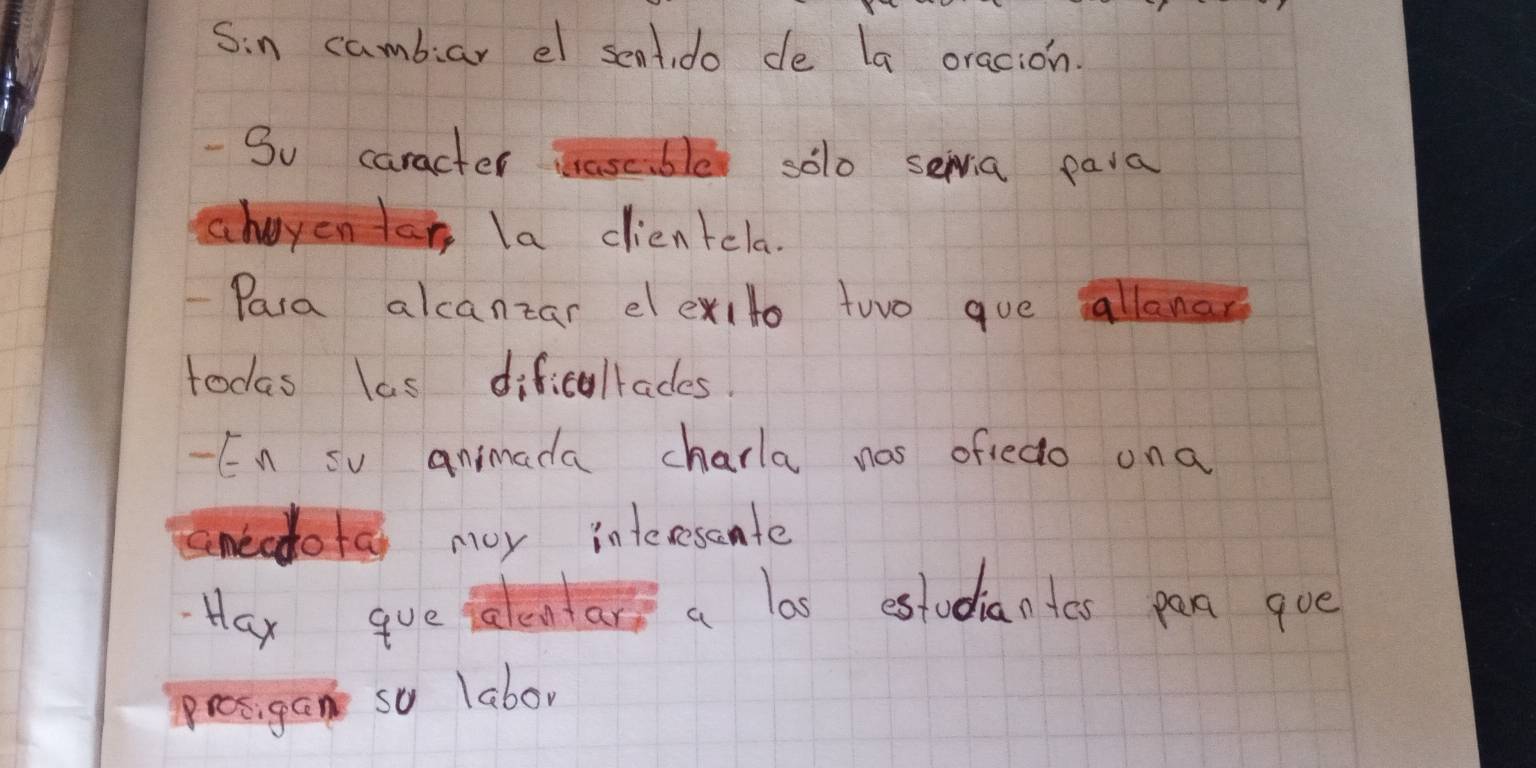 Sin cambiar el sentido de la oración.
- Su caracter irascible sólo servia para
ahuyentar, la clientela.
- Para alcanzar el exito tuvo que allanar
todas las dificultades.
- En su animada charla nos ofrecio una
anécdota muy interesante
- Hay que alentar a los estudiantes para que
prosigan su labor